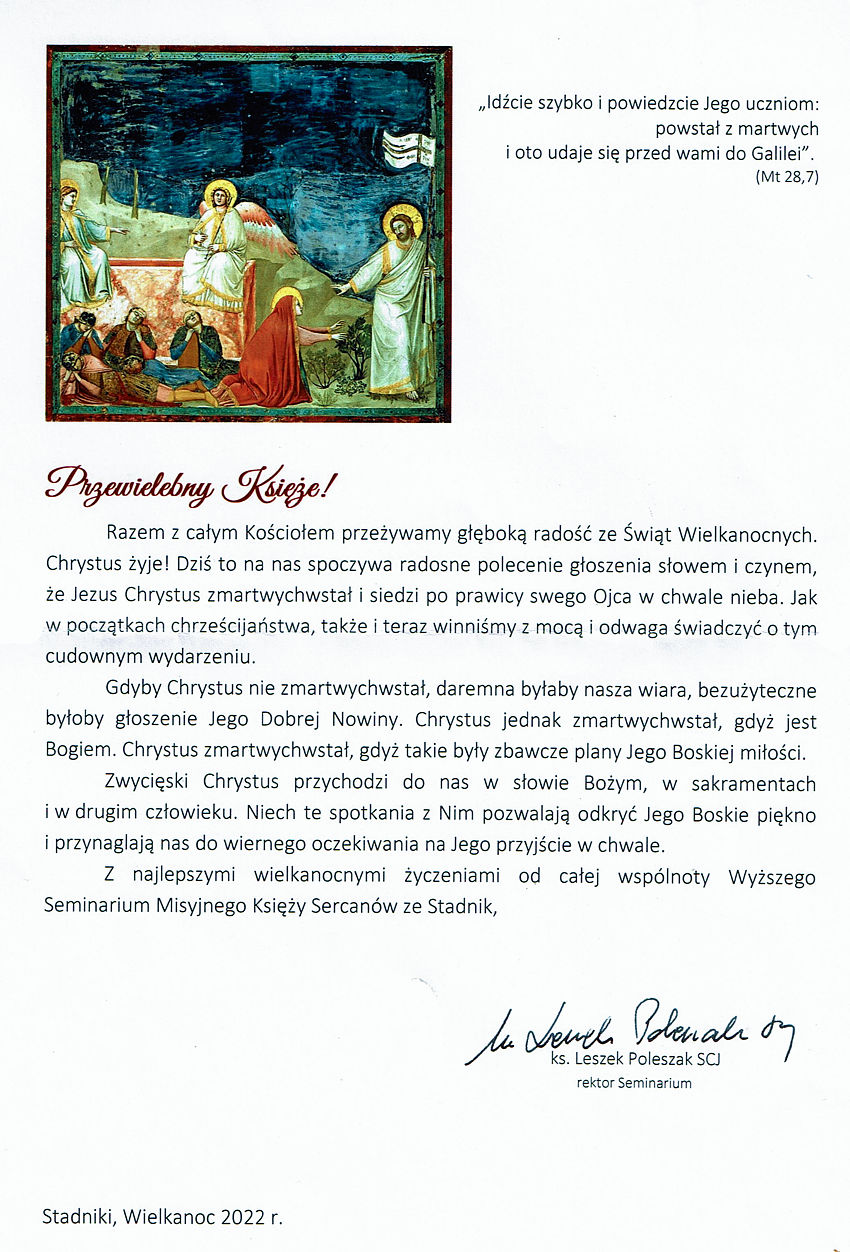 „Idźcie szybko i powiedzcie Jego uczniom:
powstał z martwych
i oto udaje się przed wami do Galilei”.
(Mt 28,7)
Przewielebny Księże!
Razem z całym Kościołem przeżywamy głęboką radość ze Świąt Wielkanocnych.
Chrystus żyje! Dziś to na nas spoczywa radosne polecenie głoszenia słowem i czynem,
że Jezus Chrystus zmartwychwstał i siedzi po prawicy swego Ojca w chwale nieba. Jak
w początkach chrześcijaństwa, także i teraz winniśmy z mocą i odwaga świadczyć o tym
cudownym wydarzeniu.
Gdyby Chrystus nie zmartwychwstał, daremna byłaby nasza wiara, bezużyteczne
byłoby głoszenie Jego Dobrej Nowiny. Chrystus jednak zmartwychwstał, gdyż jest
Bogiem. Chrystus zmartwychwstał, gdyż takie były zbawcze plany Jego Boskiej miłości.
Zwycięski Chrystus przychodzi do nas w słowie Bożym, w sakramentach
i w drugim człowieku. Niech te spotkania z Nim pozwalają odkryć Jego Boskie piękno
i przynaglają nas do wiernego oczekiwania na Jego przyjście w chwale.
Z najlepszymi wielkanocnymi życzeniami od całej wspólnoty Wyższego
Seminarium Misyjnego Księży Sercanów ze Stadnik,
ks. Leszek Poleszak SCJ
rektor Seminarium
Stadniki, Wielkanoc 2022 r.